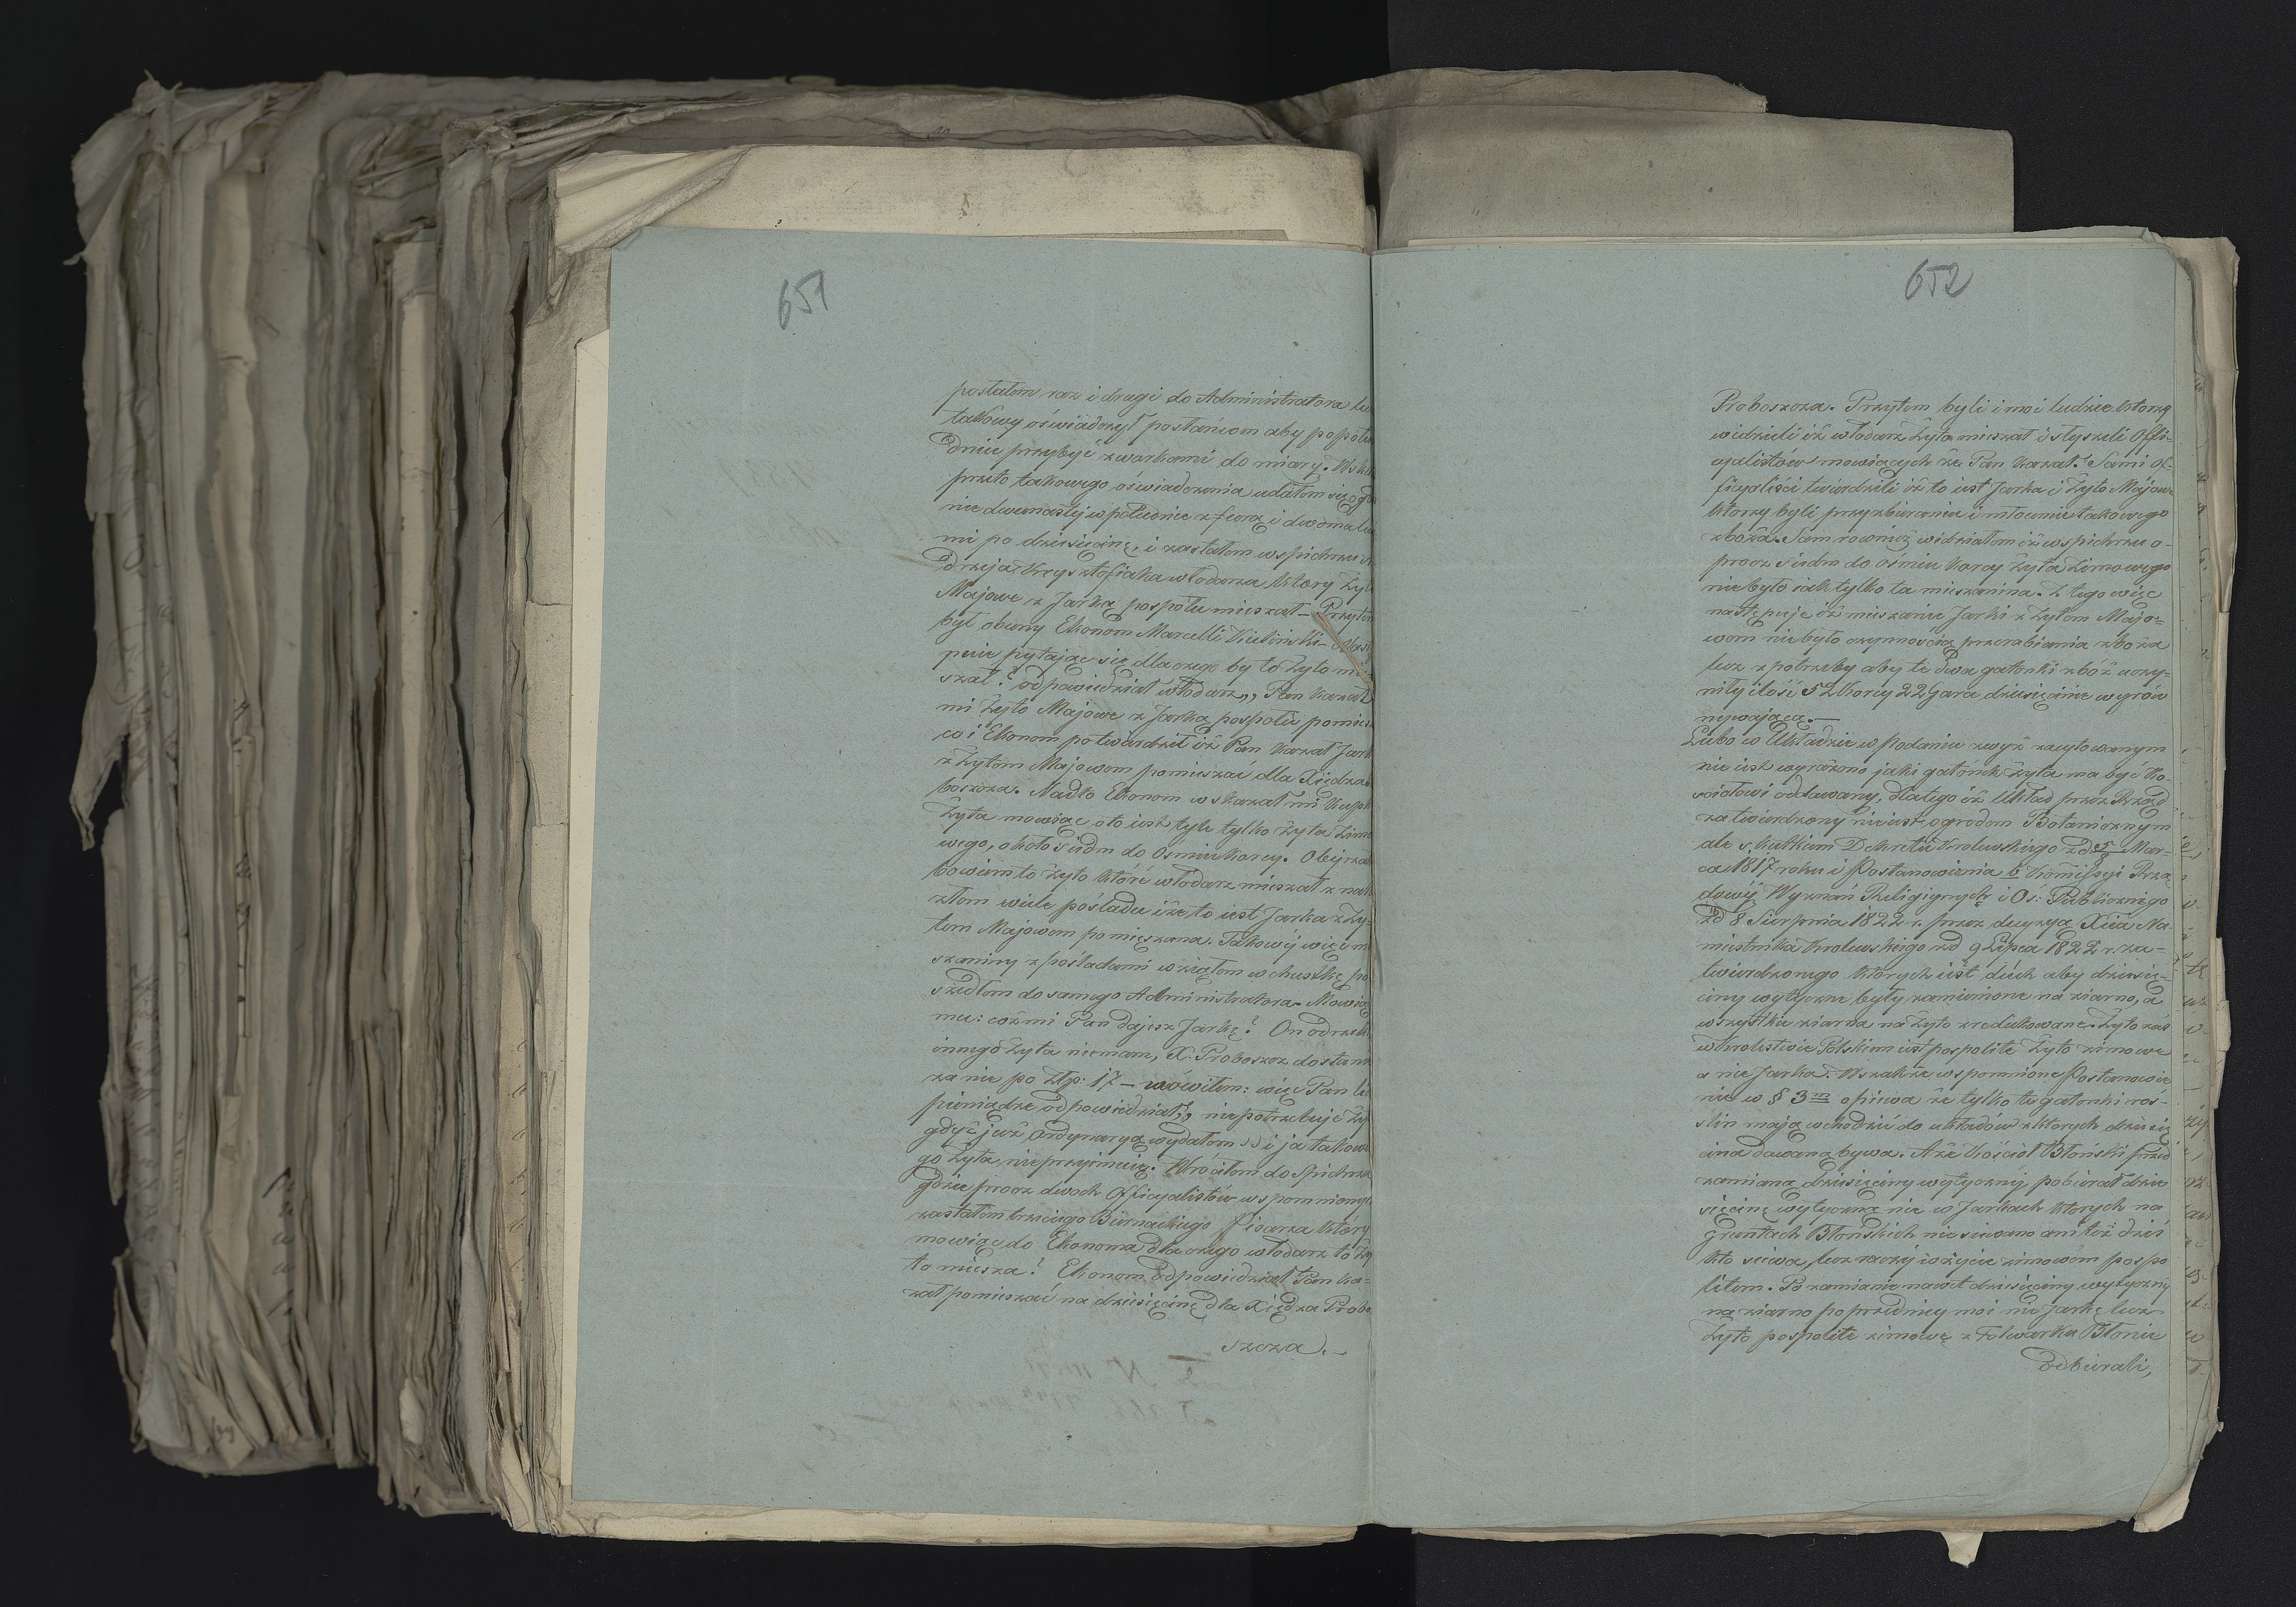 651
posłałem raz i drugi do Administratora
takowy oświadczył posłańcom aby po połu
dniu przybyć z workami do miary. W
przeto takowego oświadczenia udałem się o
nie dwunastej w południe z furą i dwoma
mi po dziesięcinę, i zastałem w spichrzu
drzeja Krzysztofiaka włodarza który żyto
Majowe z Jarką pospołu mieszał – Przytom
był obecny Ekonom Marcelli
pnie pytając się dla czego by to żyto mie
szał? odpowiedział włodarz „Pan kazał
mi żyto Majowe z Jarką pospołu pomiesz
co i Ekonom potwierdził iż Pan kazał Jark
z żytem Majowem pomieszać dla Xiędza
boszcza. Nadto Ekonom wskazał mi
żyta mowiąc oto iest tyle tylko żyta zimo
wego, około siedm do ośmiu korcy. Obejrza
bowiem to żyto które włodarz mieszał
złem wiele pośladu i że to iest Jarka z ży-
tem Majowem pomięszana. Takowej więc mi
szaniny z pośladami wziąłem w chustkę po
szedłem do samego Administratora. Mowią
mu: coż mi Pan dajesz Jarkę? On odrzekł
innego żyta niemam, X. Proboszcz dostanie
za nie po złp: 17 – mówiłem: więc Pan
pieniądze odpowiedział „niepotrzebuję ży
gdyż już Ordynaryą wydałem" i ja takowe
go żyta nieprzyjmuię. Wróciłem do Spichrza
gdzie procz dwoch Officyalistów wspomniony
zastałem trzeciego Biernackiego Pisarza który
mowiąc do Ekonoma dla czego włodarz to ży
to miesza? Ekonom odpowiedział Pan ka-
zał pomieszać na dziesięcinę dla Xiędza Probo
szcza.–
652
Proboszcza. Przytem byli i moi ludzie którzy
widzieli iż włodarz żyta mieszał i słyszeli Offi-
cyalistów mowiących że Pan kazał. Sami Of-
ficyaliści twierdzili iż to iest Jarka i żyto Majowe
którzy byli przy zbieraniu i młocnie takowego
zboża. Sam rownież widziałem iż w spichrzu o-
procz siedm do ośmiu korcy żyta zimowego
nie było iak tylko ta mieszanina. Z tego więc
następuje iż mieszanie Jarki z żytem Majo-
wem nie było czynnością przerabiania zboża
lecz z potrzeby aby te dwa gatonki zbóż uczy-
niły ilość 52 korcy 22 garce dziesięcinie wyrów
nywającą.–
Lubo w Układzie w podaniu zwyż zacytowanym
nie iest wyrażono jaki gatonek żyta ma być Ko-
ściołowi oddawany, dlatego iż Układ przez Rząd
zatwierdzony nie iest ogrodem Botanicznym
ale skutkiem Dekretu Krolewskiego z d. Mar-
ca 1817 roku i Postanowienia b. Kommissyi Rzą
dowej Wyznań Religijnych i Oś: Publicznego
z d 8 Sierpnia 1822 r. przez decyzyą Xcia Na-
miestnika Krolewskiego z d 9 Lipca 1822 r. za-
twierdzonego których iest duch aby dziesię-
ciny wytyczne były zamienione na ziarno, a
wszystkie ziarna na żyto zredukowane. Żyto zaś
w Krolestwie Polskiem iest pospolite żyto zimowe
a nie Jarka. Wszakże wspomnione Postanowie
nie w § 3m opiewa że tylko te gatonki roś-
lin mają wchodzić do układów z których dziesię
cina dawana bywa. A że Kościoł Błoński przed
zamianą dziesięciny wytycznej pobierał dzie
sięcinę wytyczną nie w Jarkach których na
gruntach Błońskich nie siewano ani też dziś
kto siewa, lecz raczej w życie zimowem pospo
litem. Po zamianie nawet dziesięciny wytycznej
na ziarno poprzednicy moi nie Jarkę lecz
żyto pospolite zimowe z Folwarku Błonie
odbierali,